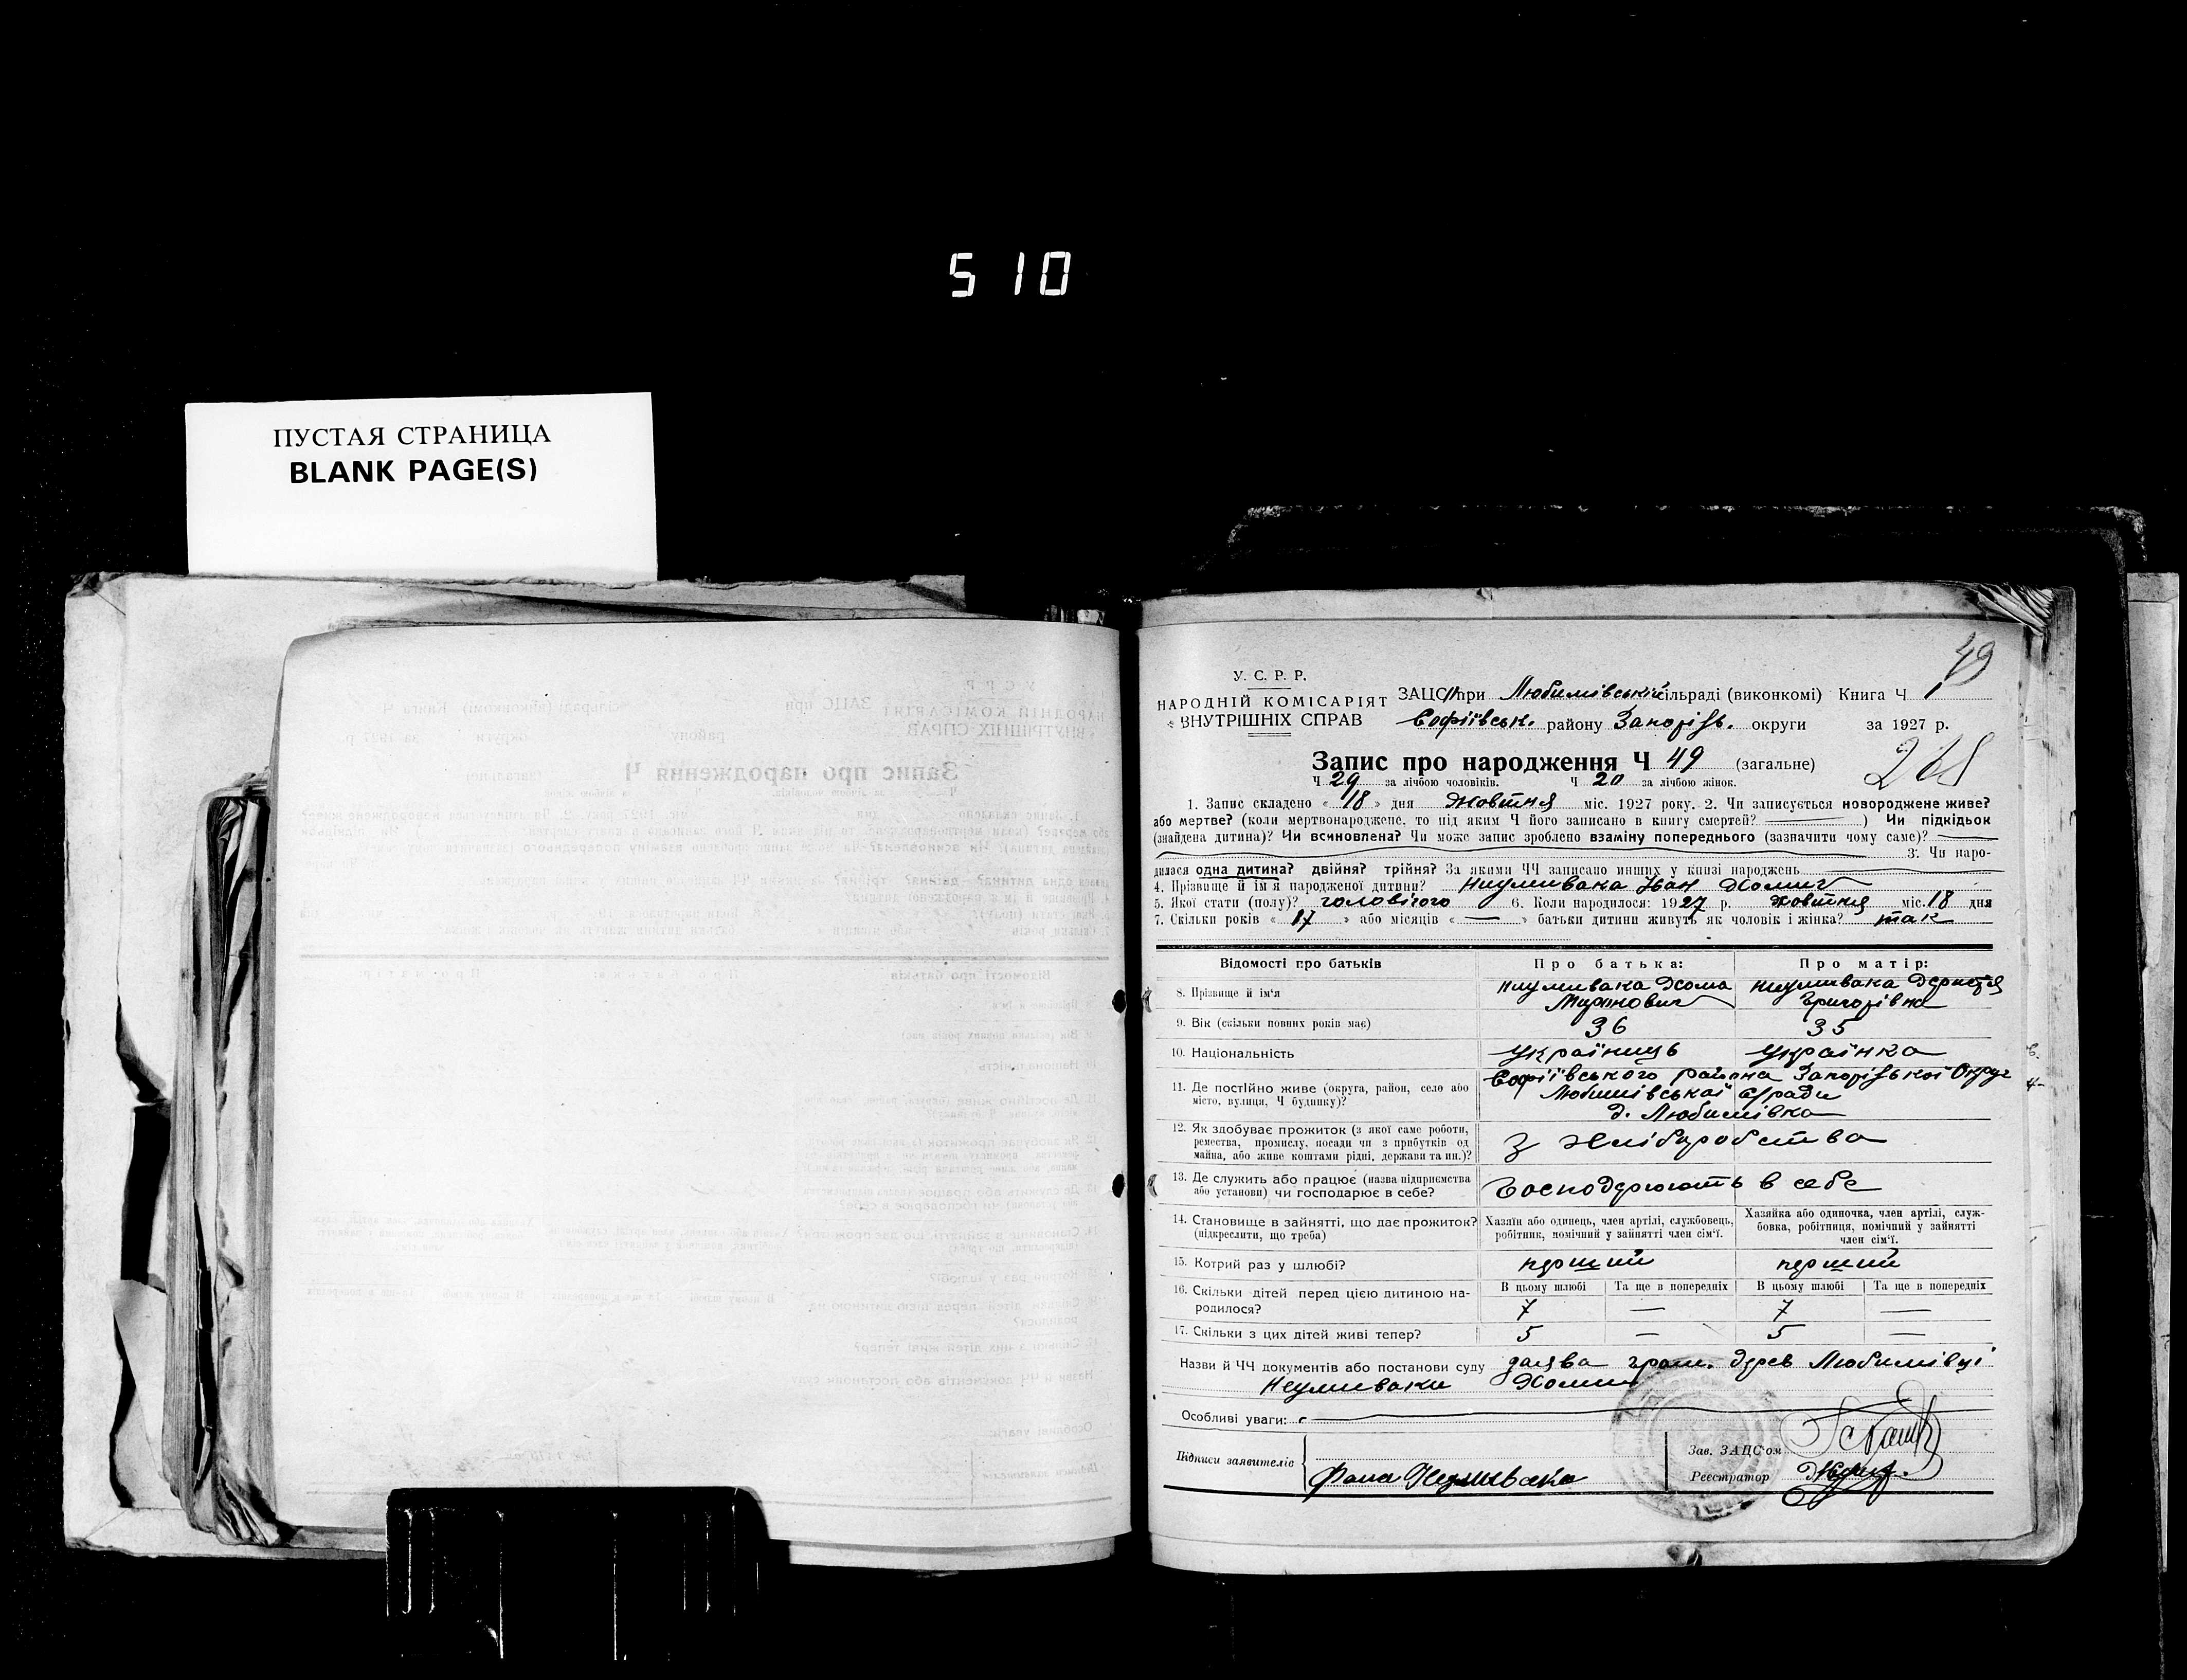 510
ПУСТАЯ СТРАНИЦА
BLANK PAGE(S)
49
У. С. Р. Р.
НАРОДНІЙ КОМІСАРІЯТ
ВНУТРІШНІХ СПРАВ
ЗАЦС при Любимівській сільраді (виконкомі) Книга Ч 1
Софіївськ. району Запорізь. округи за 1927 р.
Запис про народження Ч 49 (загальне)
Ч 29 за лічбою чоловіків. Ч 20 за лічбою жінок.
1. Запис складено « 18 » дня жовтня міс. 1927 року. 2. Чи записується новороджене живе?
або мертве? (коли мертвонароджене, то під яким Ч його записано в книгу смертей? ) Чи підкідьок
(знайдена дитина)? Чи всиновлена? Чи може запис зроблено взаміну попереднього (зазначити чому саме)?
3. Чи наро-
дилася одна дитина? двійня? трійня? За якими ЧЧ записано инших у книзі народжень
4. Прізвище й ім'я народженої дитини? Неумивака Іван Хомич
5. Якої стати (полу)? чоловічого 6. Коли народилося: 1927 р. жовтня міс. 18 дня
7. Скільки років « 17 » або місяців « — » батьки дитини живуть як чоловік і жінка? так
Відомості про батьків Про батька: Про матір:
8. Прізвище й ім'я Неумивака Хома Неумивака
Миронович Григорівна
9. Вік (скільки повних років має) 36 35
10. Національність Українець Українка
11. Де постійно живе (округа, район, село або місто, вулиця, Ч будинку)?
Софіївського района Запорізької Округ
Любимівської С/ради
д. Любимівка
12. Як здобуває прожиток (з якої саме роботи,
ремества, промислу, посади чи з прибутків од
майна, або живе коштами рідні, держави та ин.)?
З хліборобства
13. Де служить або працює (назва підприємства
або установи) чи господарює в себе?
Господарюють в себе
14. Становище в зайнятті, що дає прожиток?
(підкреслити, що треба)
Хазяїн або одинець, член артілі, службовець,
робітник, помічний у зайнятті член сім'ї.
Хазяйка або одиночка, член артілі, служ-
бовка, робітниця, помічний у зайнятті
член сім'ї.
15. Котрий раз у шлюбі? перший перший
16. Скільки дітей перед цією дитиною на-
родилося?
В цьому шлюбі Та ще в попередніх В цьому шлюбі Та ще в попередніх
7 — 7 —
17. Скільки з цих дітей живі тепер? 5 — 5 —
Назви й ЧЧ документів або постанови суду заява гром. дерев Любимівці
Неумиваки Хоми
Особливі уваги:
Підписи заявителів
Фома Неумывака
Зав. ЗАЦС'ом
Реєстратор